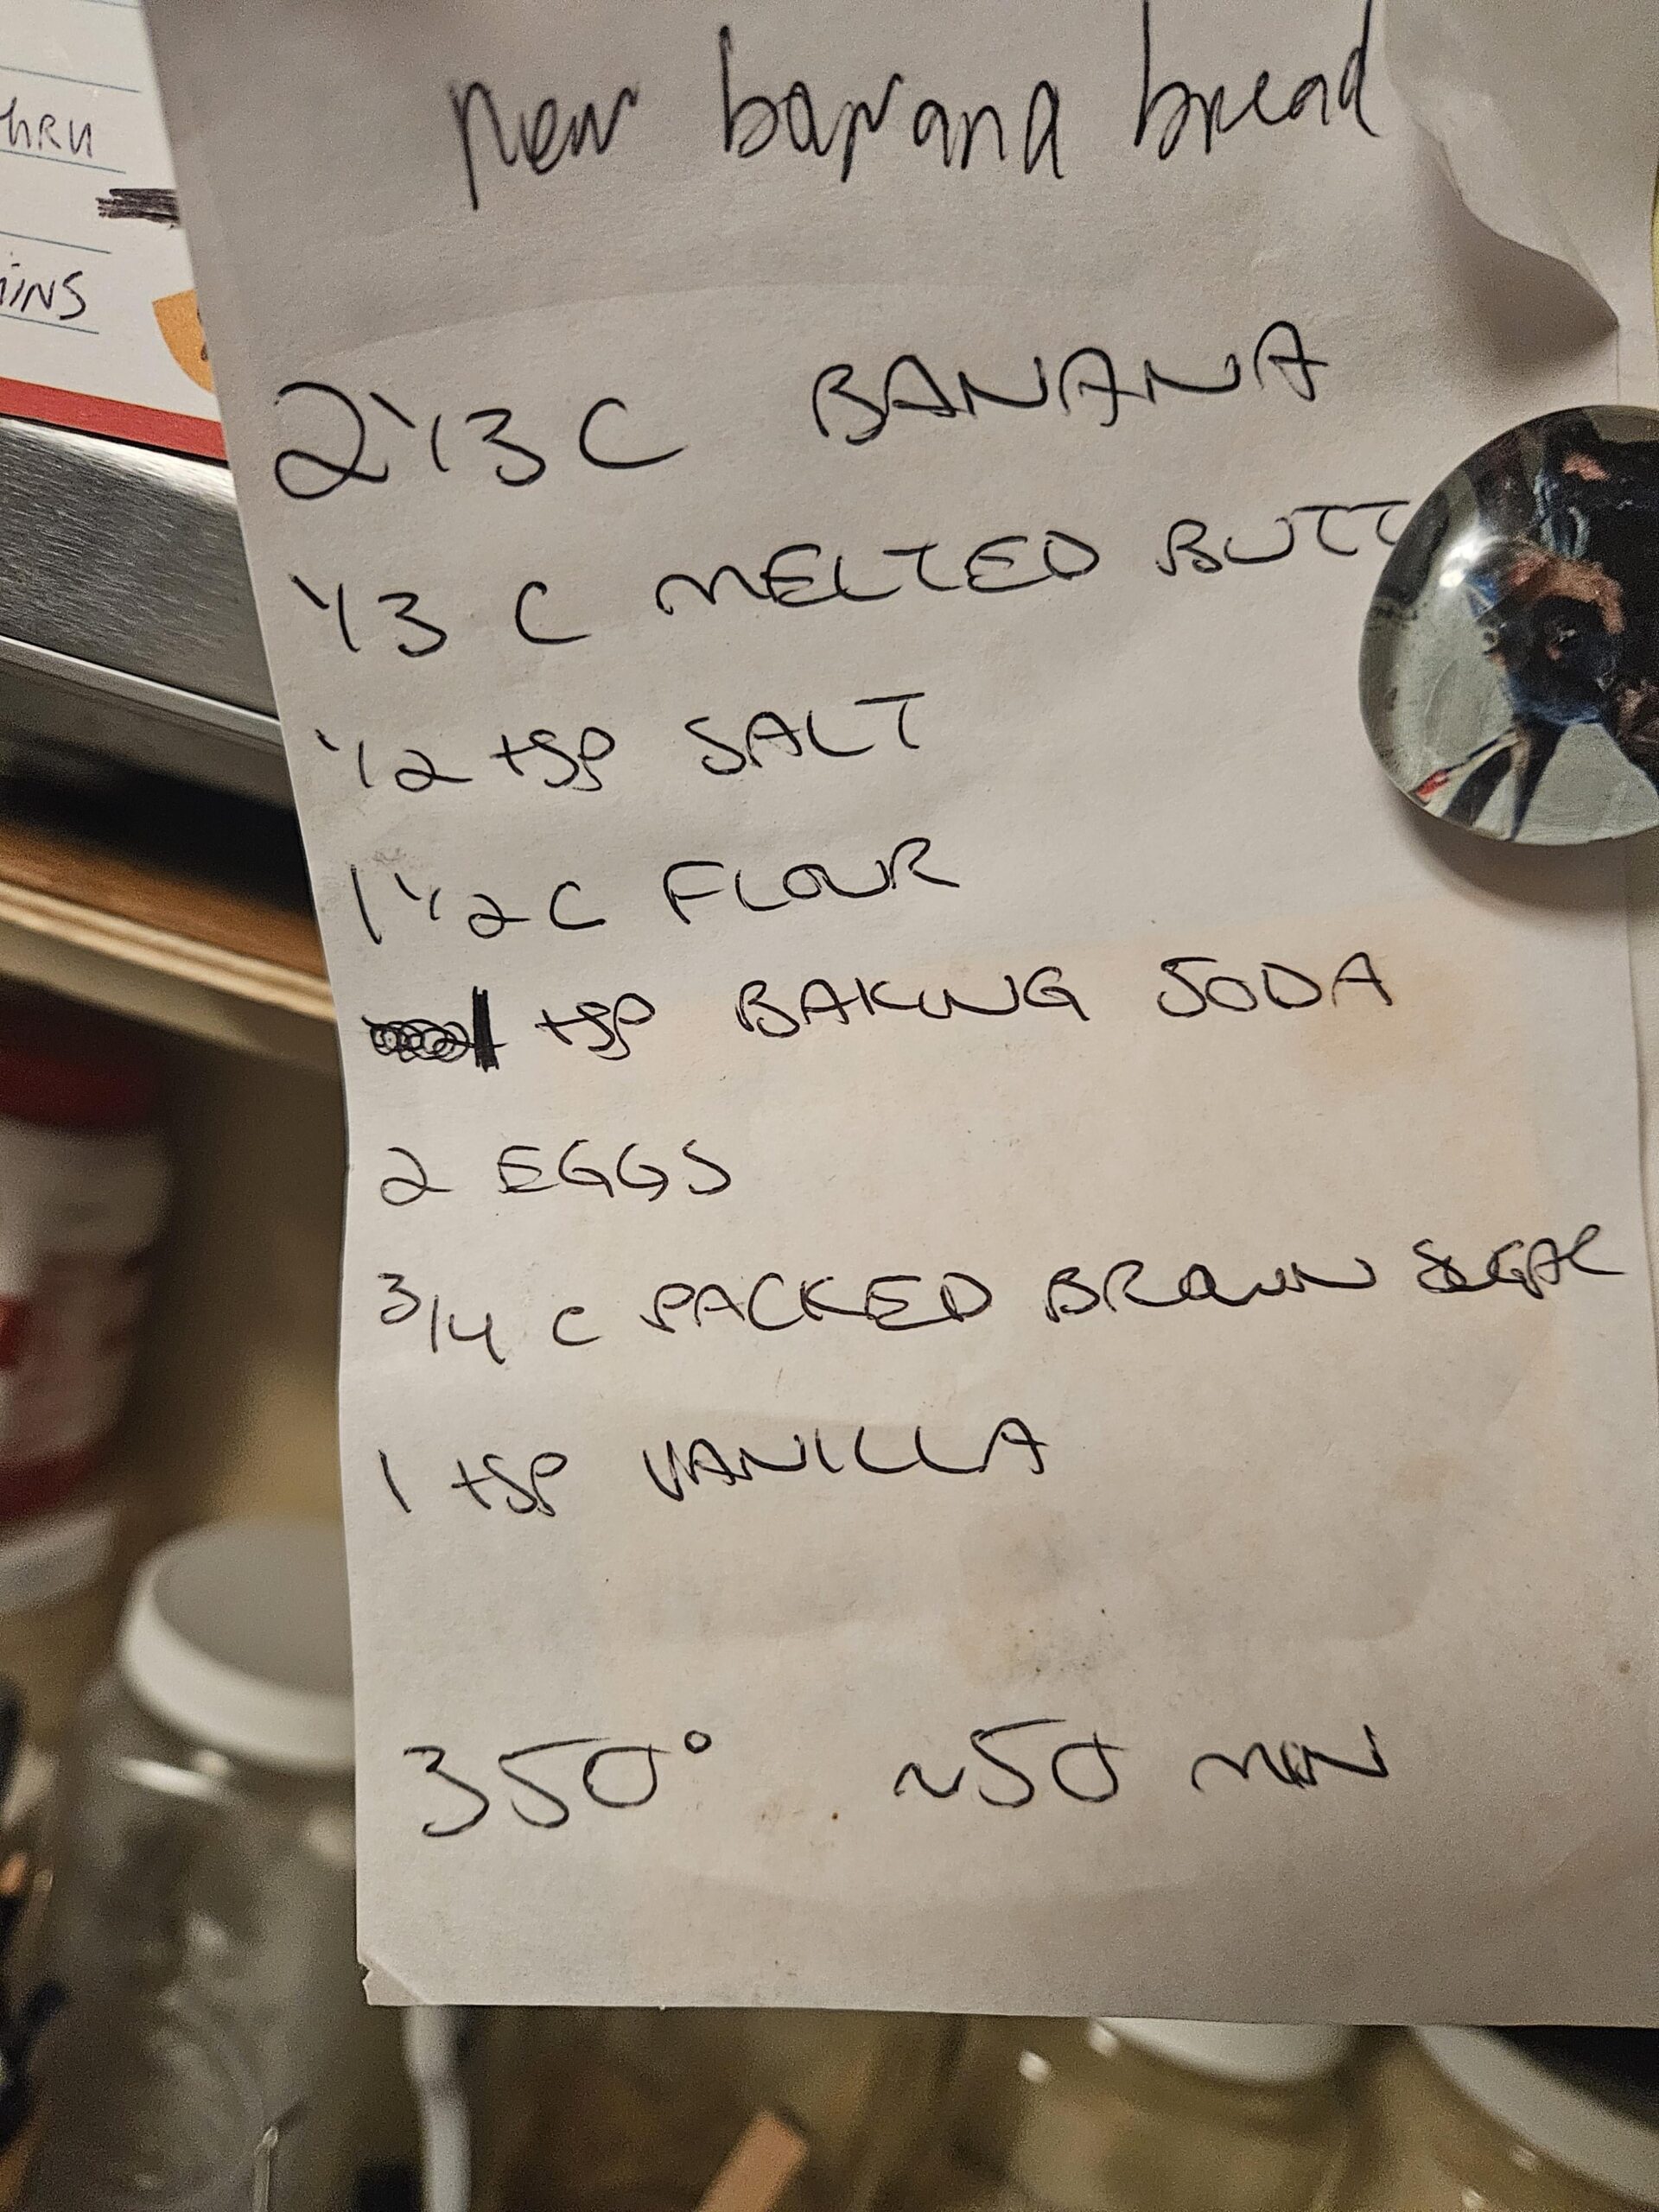 new banana bread
HRU
INS
2 1/3 C BANANA
1/3 C MELTED BUTT
1/2 tsp SALT
1 1/2 C FLOUR
1 tsp BAKING SODA
2 EGGS
3/4 C PACKED BROWN SUGAR
1 tsp VANILLA
350° ~50 MIN